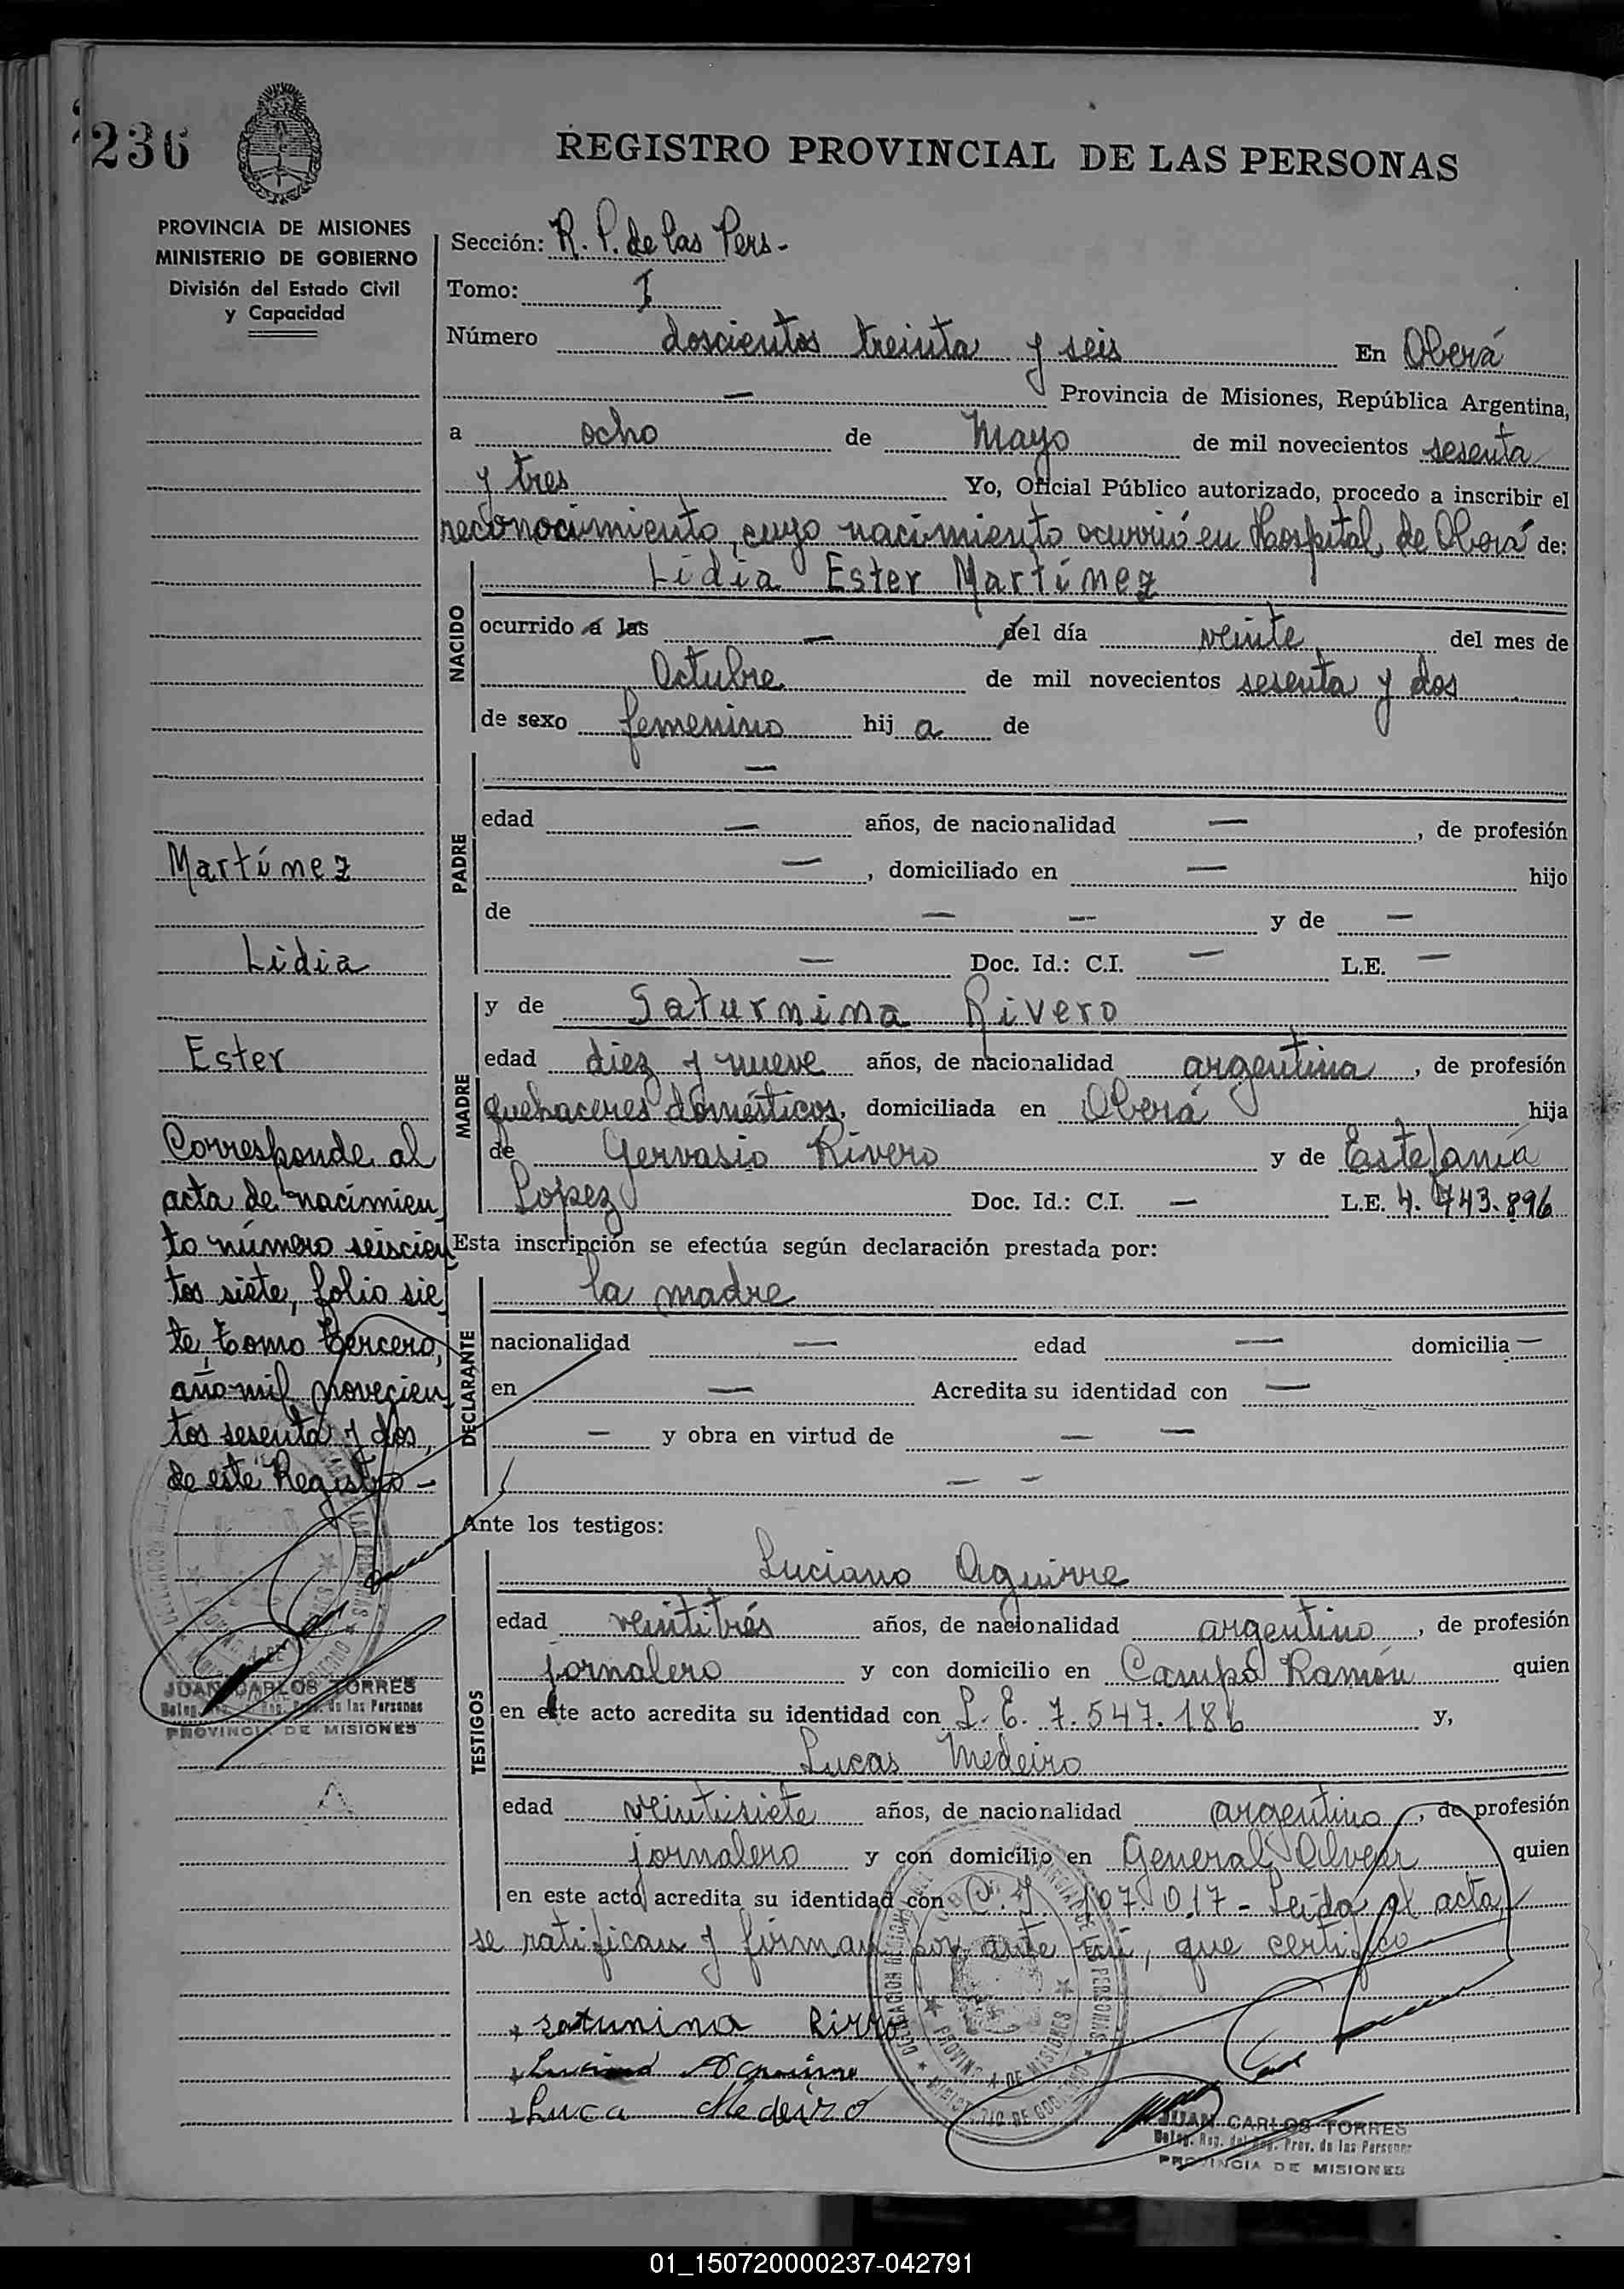 236
REGISTRO PROVINCIAL DE LAS PERSONAS
PROVINCIA DE MISIONES
MINISTERIO DE GOBIERNO
División del Estado Civil
y Capacidad
Sección: R. P. de las Pers-
Tomo: I
Número doscientos treinta y seis En Oberá
— Provincia de Misiones, República Argentina,
a ocho de Mayo de mil novecientos sesenta
y tres Yo, Oficial Público autorizado, procedo a inscribir el
reconocimiento, cuyo nacimiento ocurrió en Hospital de Oberá de:
NACIDO
Lidia Ester Martínez
ocurrido a las — del día veinte del mes de
Octubre de mil novecientos sesenta y dos
de sexo femenino hij a de
PADRE
—
edad — años, de nacionalidad — , de profesión
— , domiciliado en — hijo
de — — y de —
— Doc. Id.: C.I. — L.E. —
MADRE
y de Saturnina Rivero
edad diez y nueve años, de nacionalidad argentina , de profesión
quehaceres domésticos, domiciliada en Oberá hija
de Gervasio Rivero y de Estefanía
Lopez Doc. Id.: C.I. — L.E. 4.743.896
Esta inscripción se efectúa según declaración prestada por:
DECLARANTE
la madre
nacionalidad — edad — domicilia —
en — Acredita su identidad con —
— y obra en virtud de — —
— —
Ante los testigos:
TESTIGOS
Luciano Aguirre
edad veintitrés años, de nacionalidad argentino , de profesión
jornalero y con domicilio en Campo Ramón quien
en este acto acredita su identidad con L. E. 7.547.186 y,
Lucas Medeiro
edad veintisiete años, de nacionalidad argentino , de profesión
jornalero y con domicilio en General Alvear quien
en este acto acredita su identidad con C. I. 107.017 - Leída el acta,
se ratifican y firman por ante mí, que certifico
Saturnina
Aguirre
Luca Medeiro
JUAN CARLOS TORRES
Deleg. Reg. del Reg. Prov. de las Personas
PROVINCIA DE MISIONES
Martínez
Lidia
Ester
Corresponde al
acta de nacimien
to número seiscien
tos siete, folio sie
te, tomo tercero,
año mil novecien
tos sesenta y dos,
de este Registro -
JUAN CARLOS TORRES
Deleg. Reg. Prov. de las Personas
PROVINCIA DE MISIONES
01_150720000237-042791